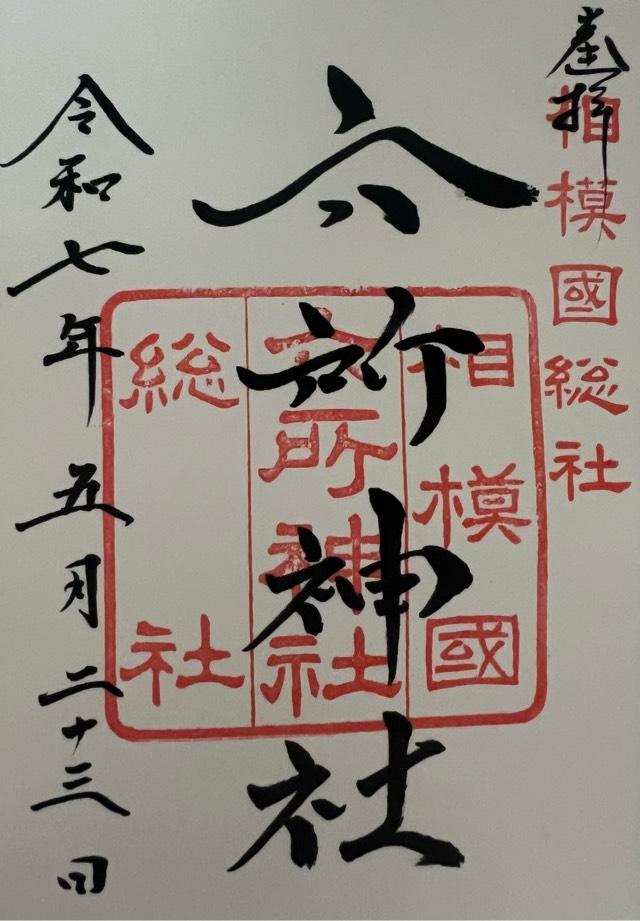 奉拝
相模國総社
相模國
六所神社
総社
六所神社
令和七年五月二十三日